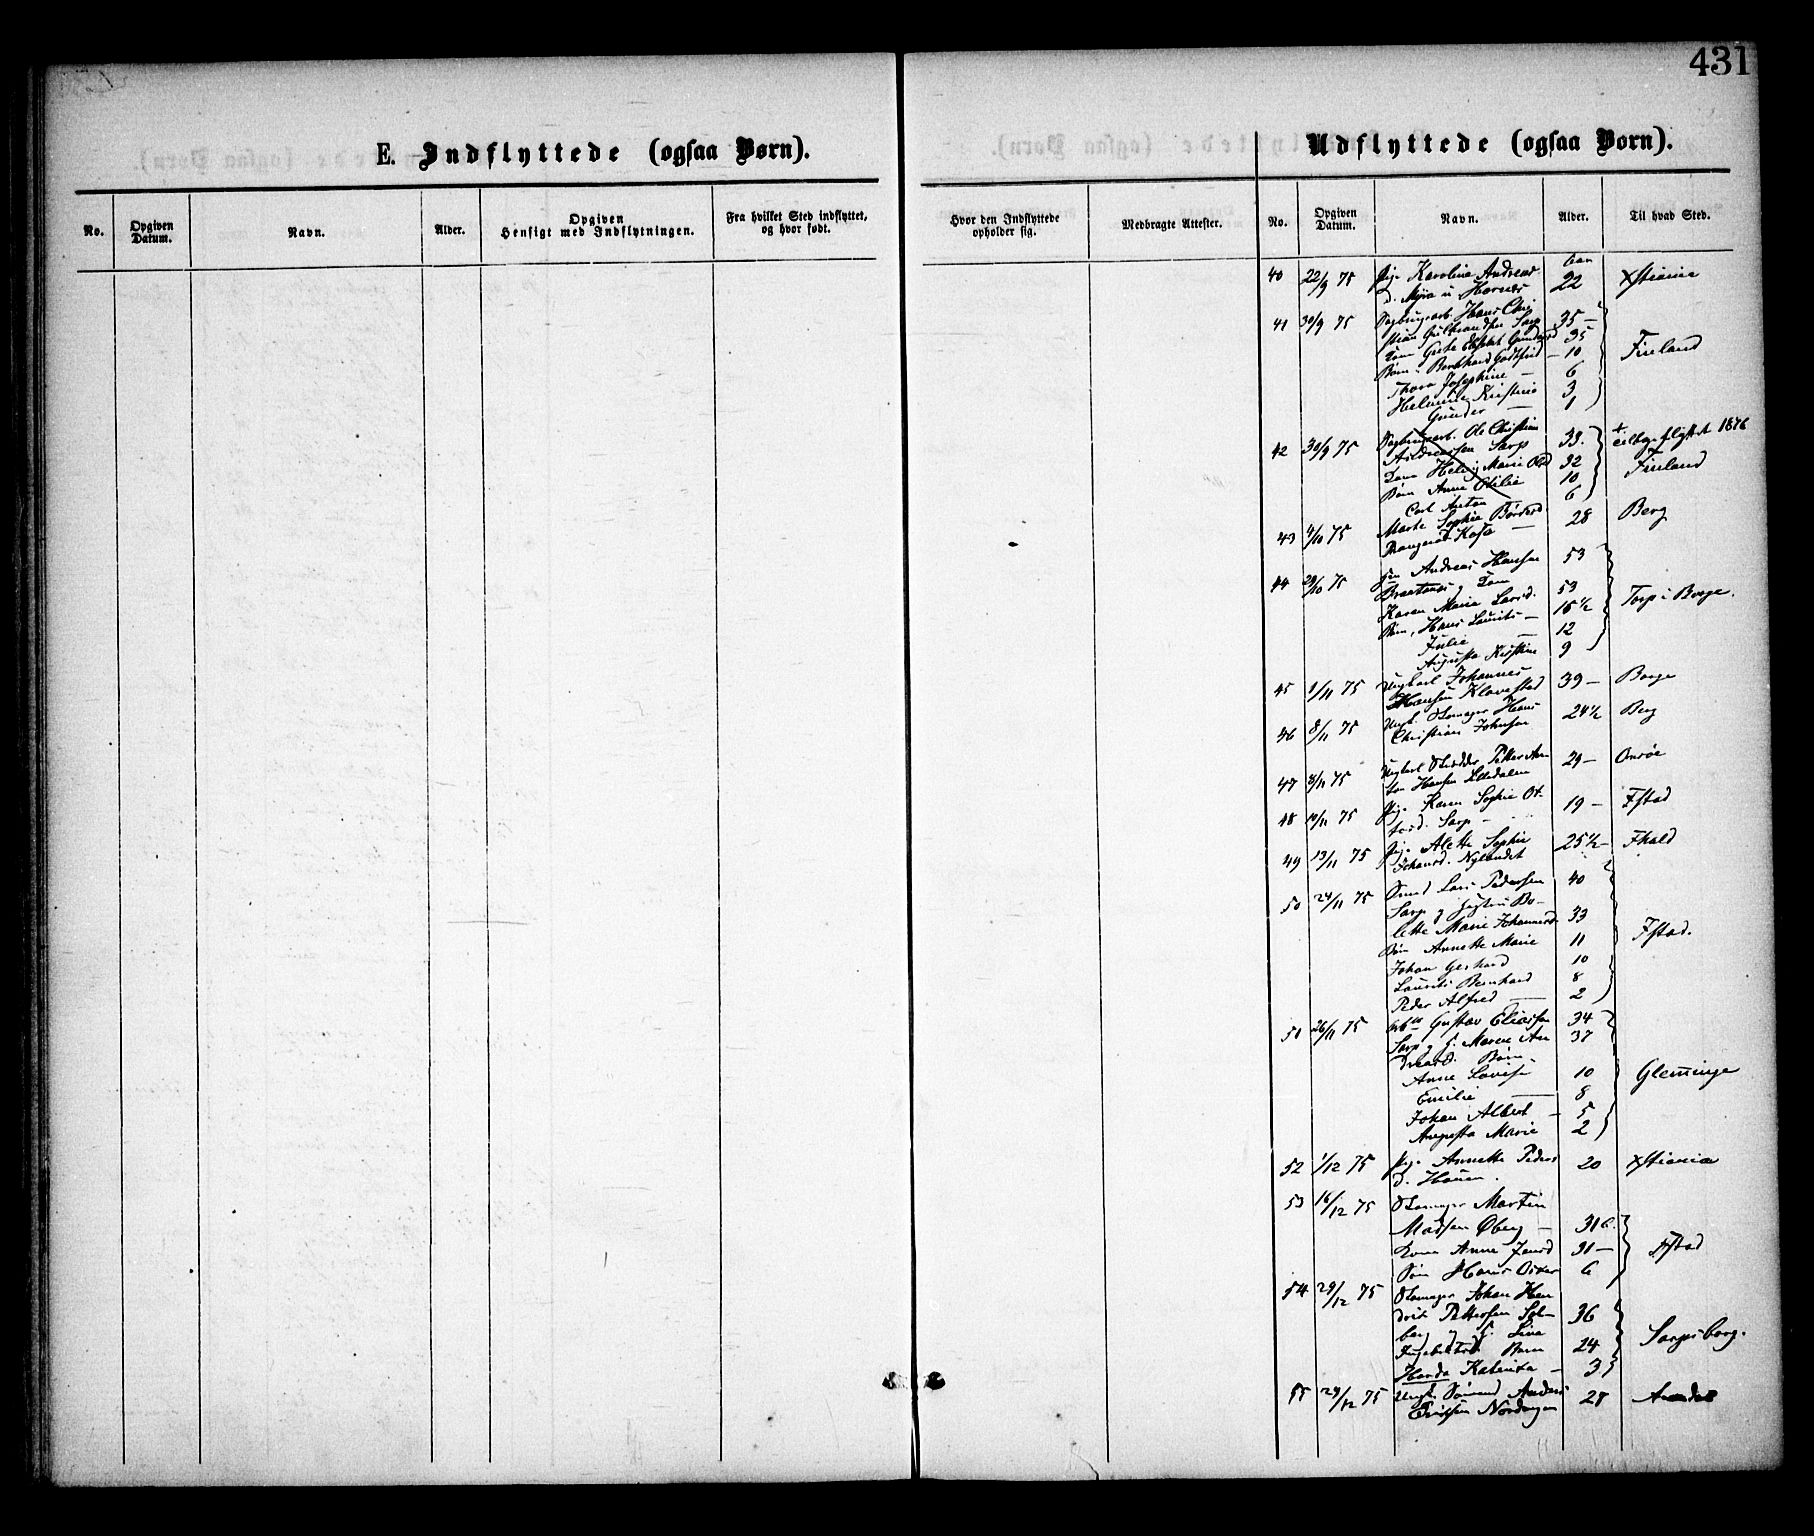 431
E. Indflyttede (ogsaa Børn).
Udflyttede (ogsaa Børn).
No.
Opgiven Datum.
Navn.
Alder.
Opgiven Hensigt med Indflytningen.
Fra hvilket Sted indflyttet, og hvor født.
Hvor den Indflyttede opholder sig.
Medbragte Attester.
No.
Opgiven Datum.
Navn.
Alder.
Til hvad Sted.
40 22/9 75 Pige Karoline Andreas- 22 Xstiania
41 30/9 75 Hans Chri- 35
stian Gulbrandsen Sarp
Kone Grete 35 Finland
Børn: Bernhard Godtfred 10
Thora Josephine 6
Helmine Kristine 3
Gunder 1
42 30/9 75 Ole Christian
Andreassen Sarp 33. flyttet 1876
Kone Helvig Marie 32 Finland
Børn Anne Otilie 10
Carl Anton 6
43 4/10 75 Marte Sophie 28 Berg
44 29/10 75 Andreas Hansen 53
Kone
Karen Marie 53 Torp i Borge.
Børn, Hans Laurits 15 1/2
Julie 12
Augusta Kristine 9
45 1/11 75 Ungkarl Johannes
Hansen Klavestad 39 Borge
46 8/11 75 Ungk. Skomager Hans 24 1/2 Berg
Christian Johnsen
47 8/11 75 Ungkarl Petter An- 29 Onsøe
ton Hansen
48 10/11 75 Pige Karen Sophie 19 Fstad
Sarp
49 13/11 75 Pige Alette Sophie 25 1/2 Fhald
Johansd. Nylandet
50 24/11 75 Smed Lars Pedersen 40
Sarp og Hustru Bo-
lette Marie Johannesd. 33 Fstad.
Børn Annette Marie 11
Johan Gerhard 10
Laurits Bernhard 8
Peder Alfred 2
51 26/11 75 Gustav Eliassen 34
Sarp og H. Maren An 37
dreasd. Børn
Anne Lovise 10 Glemminge
Emilie 8
Johan Albert 5
Augusta Marie 2
52 1/12 75 Pige Annette Peders 20 Xstiania
d. Hauen.
53 16/12 75 Skomager Martin
Madsen Øberg 31
Kone Anne Jensd 31 Fstad
Søn Hans Oskar 6
54 29/12 75 Skomager Johan Hen
drik Pettersen Sol- 36
berg og H. Lina Sarpsborg.
Børn 24
Harda Katerina 3
55 29/12 75 Anders 28
Eriksen